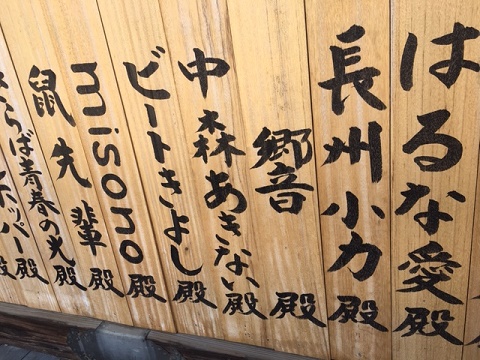 はるな愛殿
長州小力殿
郷音殿
中森あきない殿
ビートきよし殿
misono殿
鼠先輩殿
さらば青春の光殿
ホッパー殿